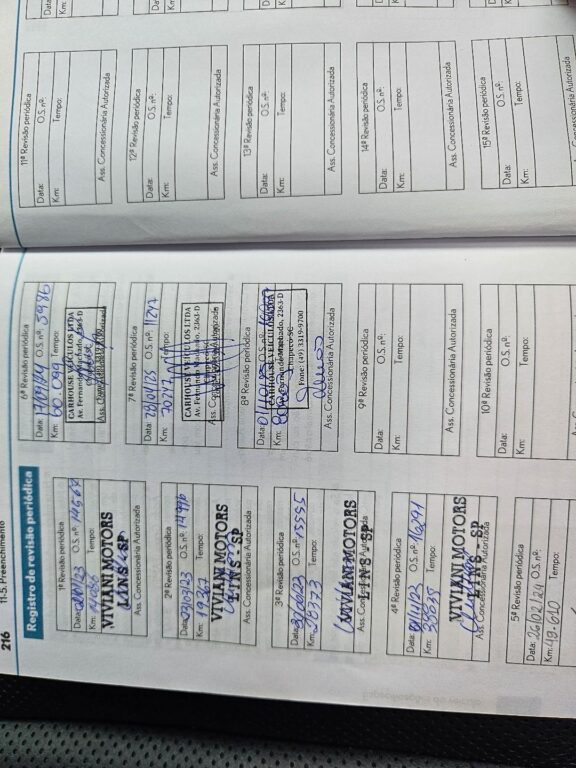 216
11-5. Preenchimento
Registro de revisão periódica
1ª Revisão periódica
Data: O.S. nº:
Km: Tempo:
VIVIANI MOTORS
LINS - SP
Ass. Concessionária Autorizada
2ª Revisão periódica
Data: 03/03/23 O.S. nº: 14996
Km: 19367 Tempo:
VIVIANI MOTORS
LINS - SP
Ass. Concessionária Autorizada
3ª Revisão periódica
Data: O.S. nº: 15595
Km: 28373 Tempo:
VIVIANI MOTORS
LINS - SP
Ass. Concessionária Autorizada
4ª Revisão periódica
Data: O.S. nº: 16291
Km: Tempo:
VIVIANI MOTORS
LINS - SP
Ass. Concessionária Autorizada
5ª Revisão periódica
Data: 26/02/24 O.S. nº:
Km: 49.610 Tempo:
6ª Revisão periódica
Data: O.S. nº: 5986
Km: 60.099 Tempo:
CARHOUSE VEÍCULOS LTDA
Av. Fernando Machado, 2363-D
Ass. Concessionária Autorizada
7ª Revisão periódica
Data: O.S. nº:
Km: 70747 Tempo:
CARHOUSE VEÍCULOS LTDA
Av. Fernando Machado, 2363-D
Ass. Concessionária Autorizada
8ª Revisão periódica
Data: O.S. nº:
Km:
CARHOUSE VEÍCULOS LTDA
Av. Fernando Machado, 2363-D
Chapecó-SC
Fone: (49) 3319-9700
Ass. Concessionária Autorizada
9ª Revisão periódica
Data: O.S. nº:
Km: Tempo:
Ass. Concessionária Autorizada
10ª Revisão periódica
Data: O.S. nº:
Km: Tempo:
11ª Revisão periódica
Data: O.S. nº:
Km: Tempo:
Ass. Concessionária Autorizada
12ª Revisão periódica
Data: O.S. nº:
Km: Tempo:
Ass. Concessionária Autorizada
13ª Revisão periódica
Data: O.S. nº:
Km: Tempo:
Ass. Concessionária Autorizada
14ª Revisão periódica
Data: O.S. nº:
Km: Tempo:
Ass. Concessionária Autorizada
15ª Revisão periódica
Data: O.S. nº:
Km: Tempo:
Ass. Concessionária Autorizada
Data:
Km:
Data:
Km:
Data:
Km:
Data:
Km: